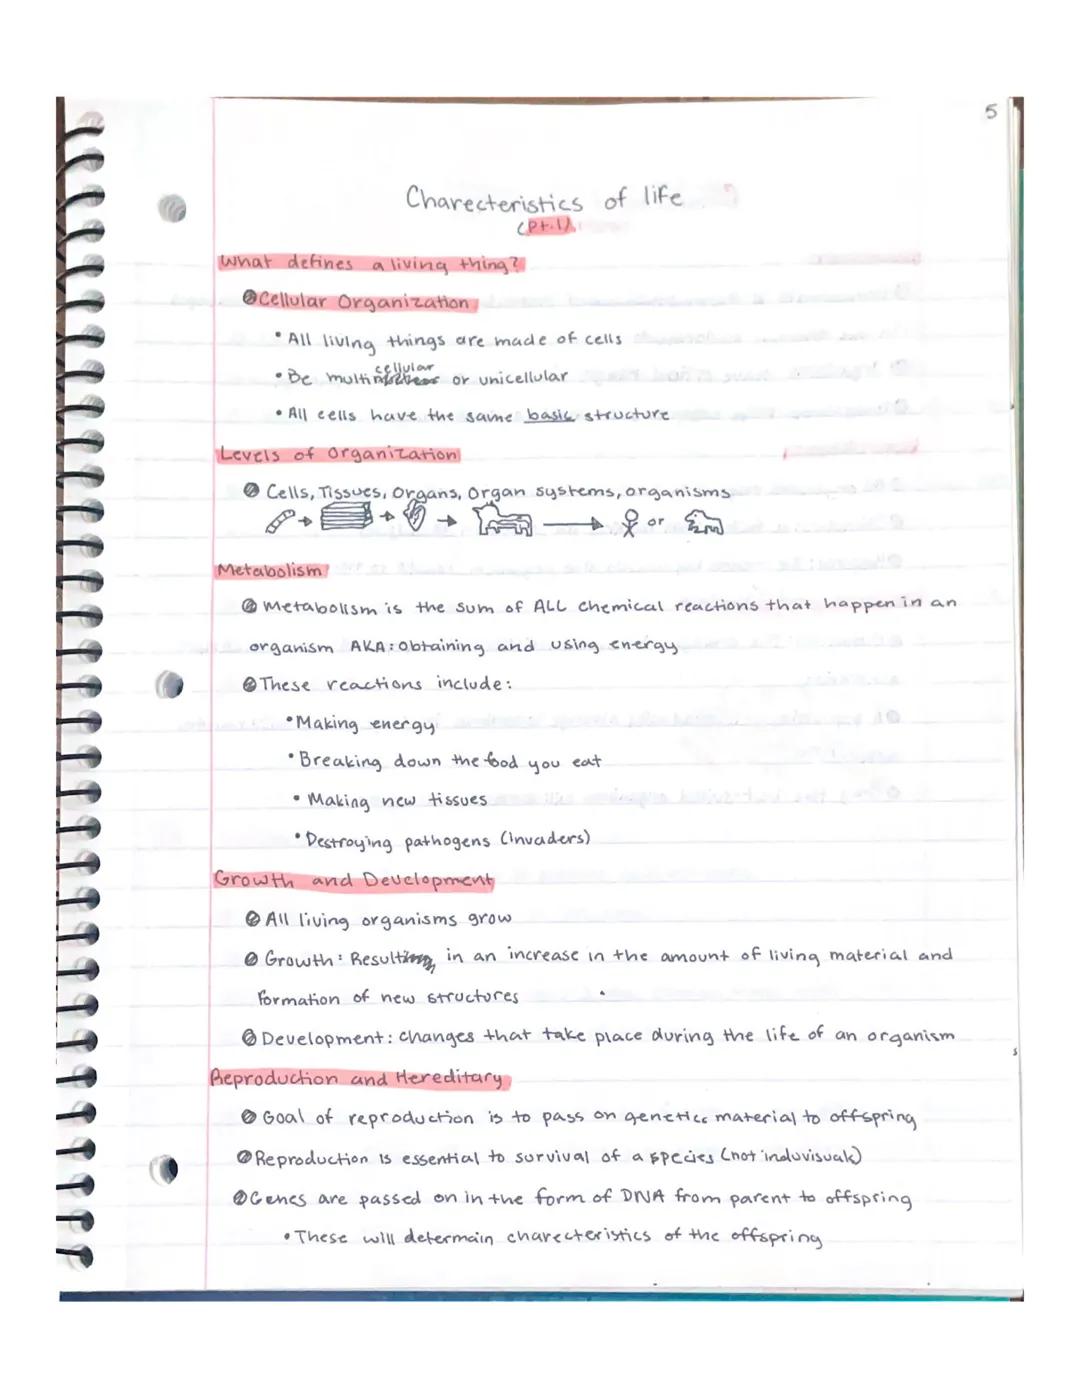 5
Charecteristics of life
(Pt.1)
What defines a living thing?
Cellular Organization
• All living things are made of cells
• Be multicellular or unicellular
• All cells have the same basic structure
Levels of Organization
Cells, Tissues, Organs, Organ systems, organisms
or
Metabolism:
Metabolism is the sum of ALL chemical reactions that happen in an
organism AKA: Obtaining and using energy
These reactions include:
• Making energy
• Breaking down the food you eat
• Making new tissues
• Destroying pathogens (Invaders)
Growth and Development
All living organisms grow
Growth: Resulting in an increase in the amount of living material and
formation of new structures
Development: Changes that take place during the life of an organism
Reproduction and Hereditary
Goal of reproduction is to pass on genetics material to offspring
Reproduction is essential to survival of a species (not induvisuals)
Genes are passed on in the form of DNA from parent to offspring
• These will determain charecteristics of the offspring